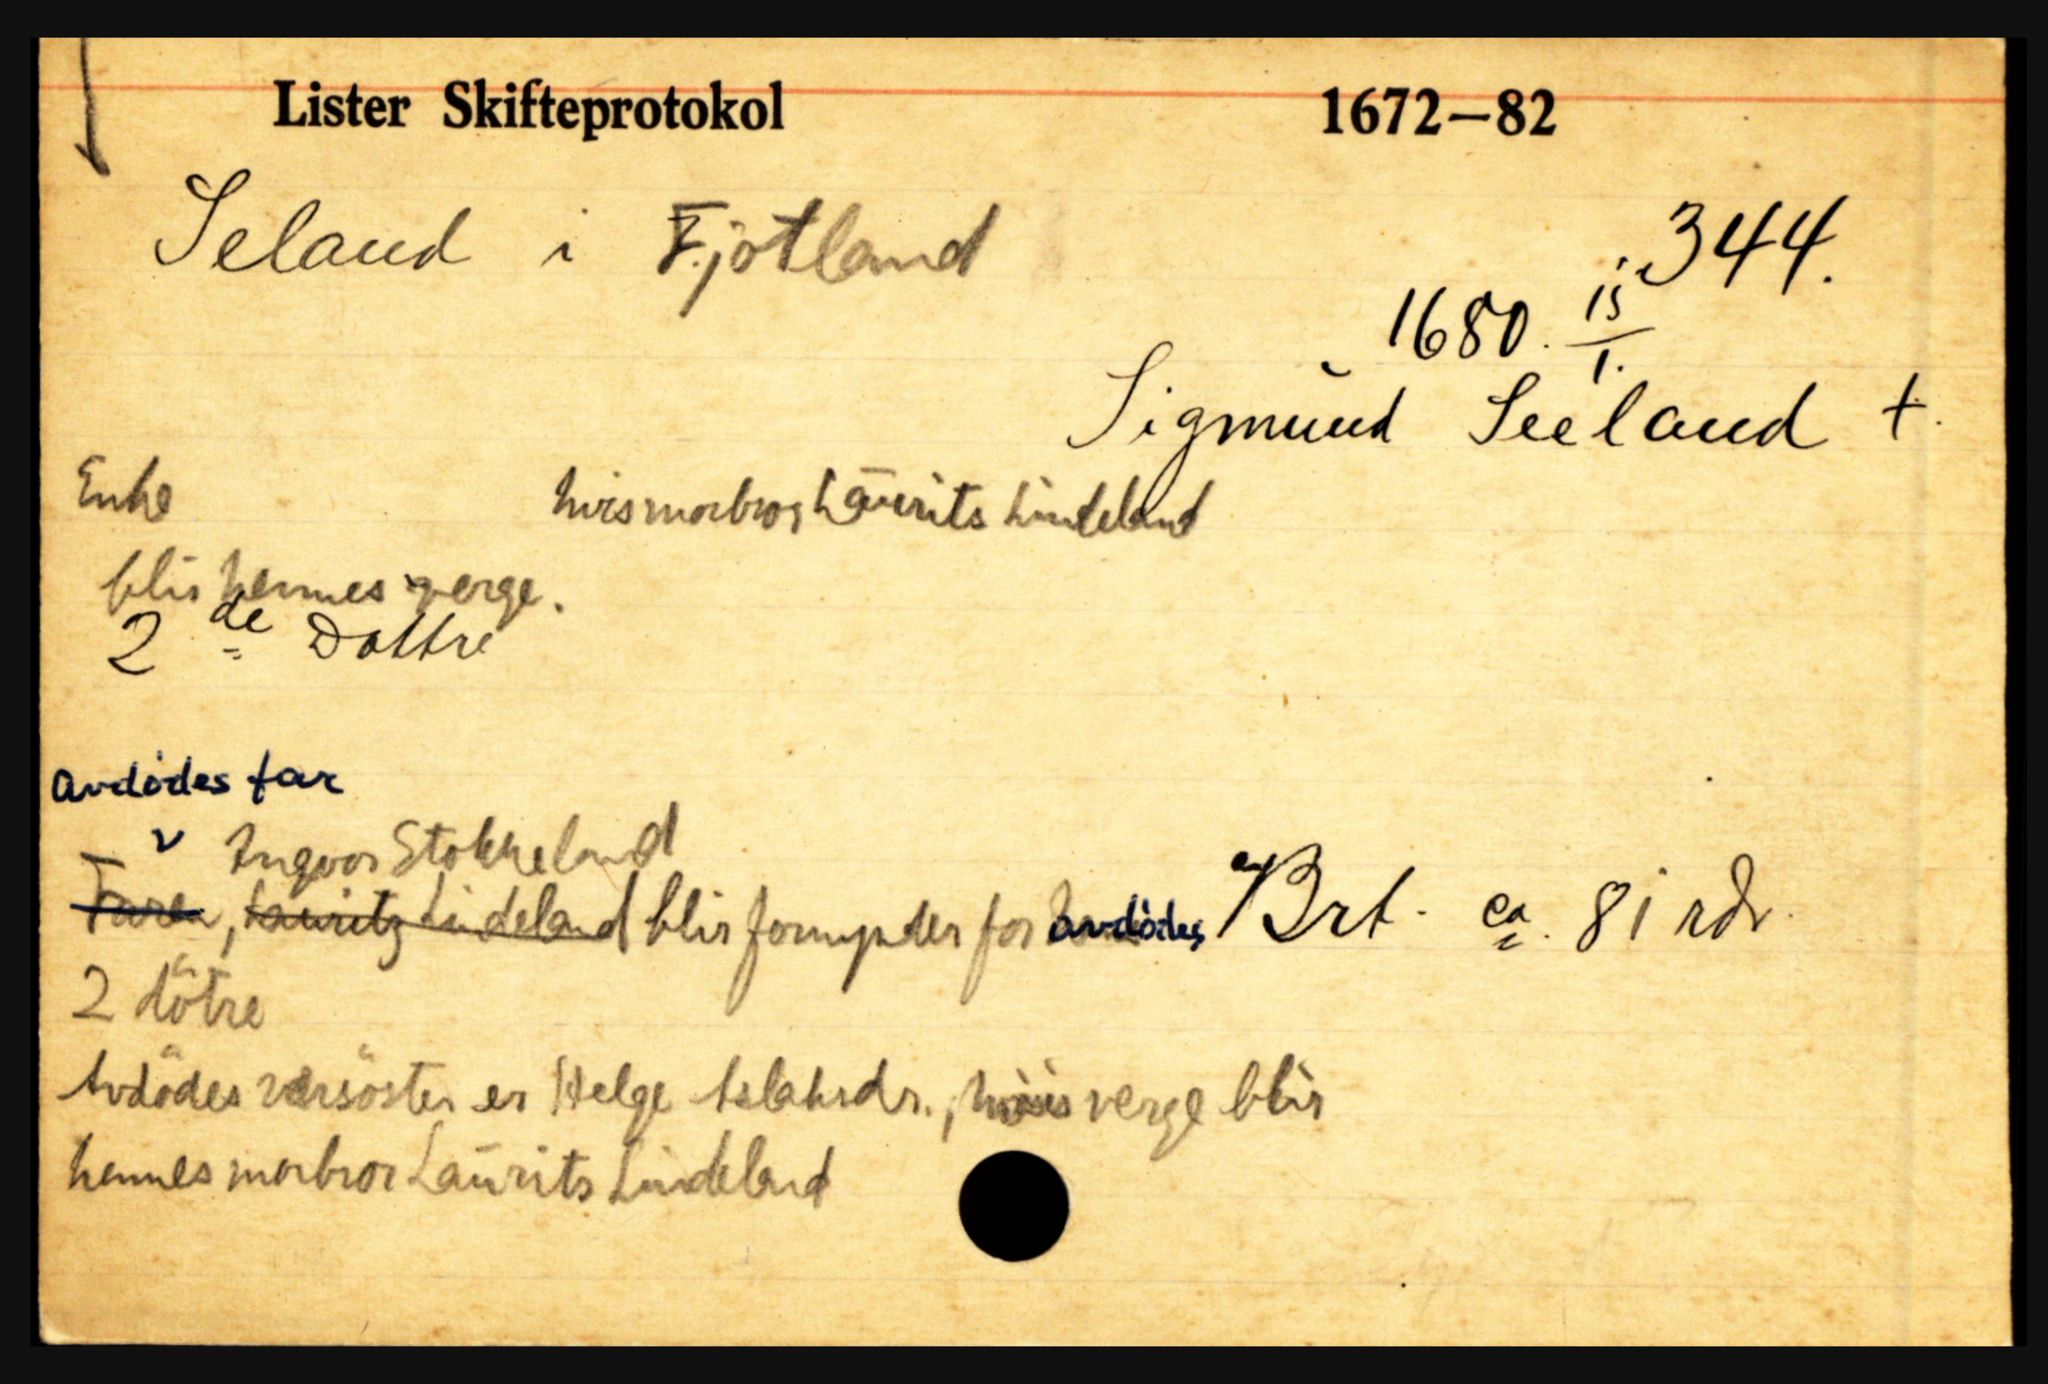 Lister Skifteprotokol 1672–82
Seland i Fjotland
344.
1680. 15/1.
Sigmund Seeland †.
Enke hvis morbror Laurits Lindeland
blir hennes verge.
2de Døttre
Avdødes far
v Ingvor Stokkeland
Faren, Lauritz Lindeland blir formynder for avdødes Brt. ca. 81 rdr.
2 dötre
Avdödes versöster er Helge Aslaksdr., hvis verge blir
hennes morbror Laurits Lindeland